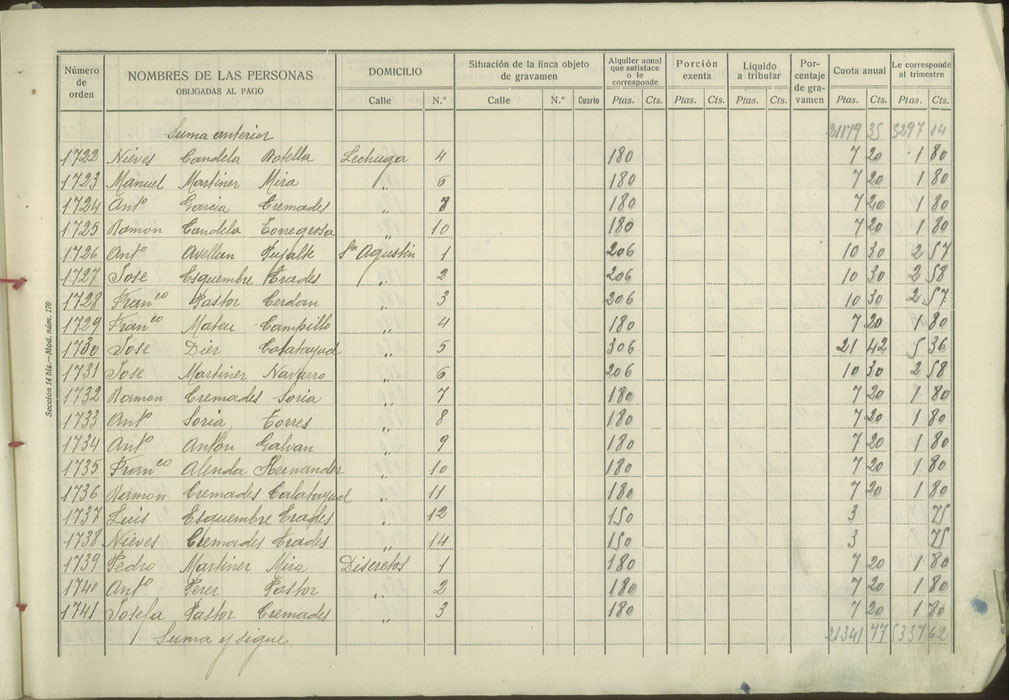 Número de orden NOMBRES DE LAS PERSONAS OBLIGADAS AL PAGO DOMICILIO Situación de la finca objeto de gravamen Alquiler anual que satisface o le corresponde Porción exenta Liquido a tributar Por-centaje de gra-vamen Cuota anual Le corresponde al trimestre
Calle N.º Calle N.º Cuarto Ptas. Cts. Ptas. Cts. Ptas. Cts. Ptas. Cts. Ptas. Cts.
Suma anterior 21179 35 5297 14
1722 Nieves Candela Botella Lechuga 4 180 7 20 1 80
1723 Manuel Martinez Mira " 6 180 7 20 1 80
1724 Antº Garcia Cremades " 8 180 7 20 1 80
1725 Ramon Candela Torregrosa " 10 180 7 20 1 80
1726 Antº Avellan Pujalte Sn Agustin 1 206 10 30 2 57
1727 Jose Esquembre Erades " 2 206 10 30 2 58
1728 Franco Pastor Cerdan " 3 206 10 30 2 57
1729 Franco Mateu Campillo " 4 180 7 20 1 80
1730 Jose Diez Calatayud " 5 306 21 42 5 36
1731 Jose Martinez Navarro " 6 206 10 30 2 58
1732 Ramon Cremades Soria " 7 180 7 20 1 80
1733 Antº Soria Torres " 8 180 7 20 1 80
1734 Antº Antón Galvan " 9 180 7 20 1 80
1735 Franco Alenda Hernandez " 10 180 7 20 1 80
1736 Ramon Cremades Calatayud " 11 180 7 20 1 80
1737 Luis Esquembre Erades " 12 150 3 75
1738 Nieves Cremades Erades " 14 150 3 75
1739 Pedro Martinez Mira Discretos 1 180 7 20 1 80
1740 Antº Perez Pastor " 2 180 7 20 1 80
1741 Josefa Pastor Cremades " 3 180 7 20 1 80
Suma y sigue 21341 77 5337 62
Sección 14 bis.—Mod. núm. 170